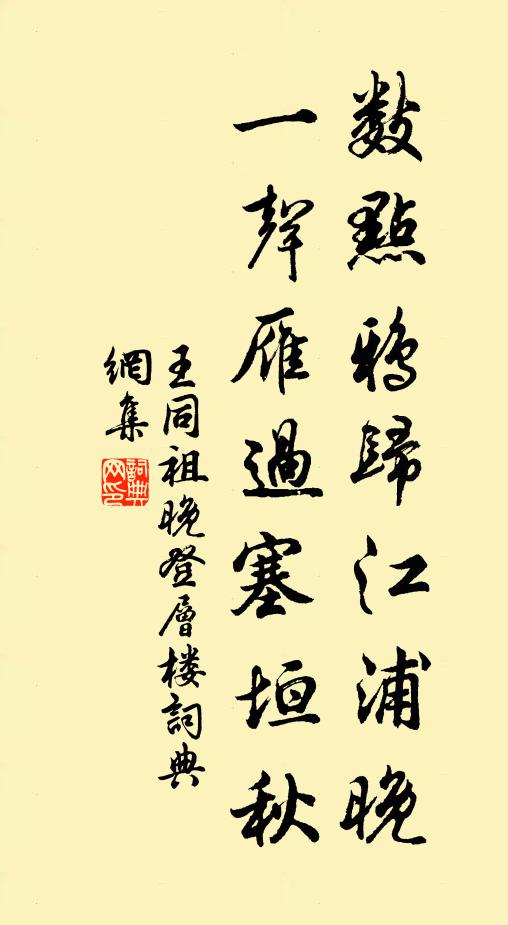 數點鴉歸江浦晚
一聲雁過塞垣秋
王同祖晚登層楼詞典
網集
詞典網印